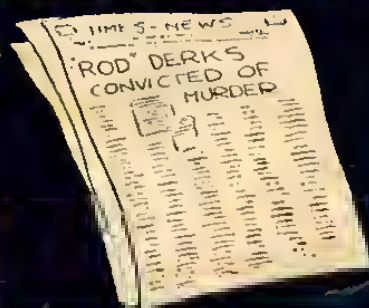 TIMES-NEWS
"ROD" DERKS
CONVICTED OF
MURDER